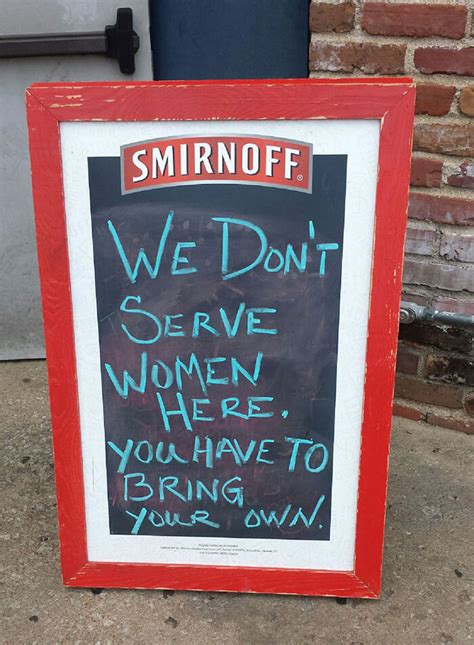 SMIRNOFF®
WE DON'T
SERVE
WOMEN
HERE.
YOU HAVE TO
BRING
YOUR OWN.